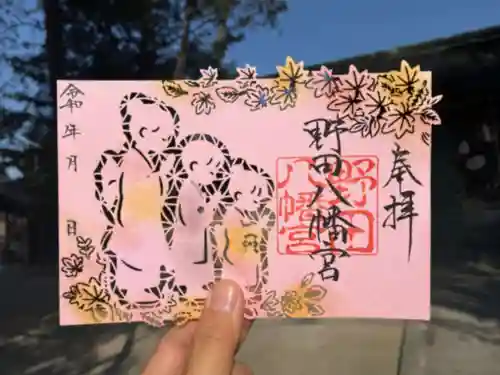 奉拝
野田八幡宮
野田
八幡宮
令和 年 月 日